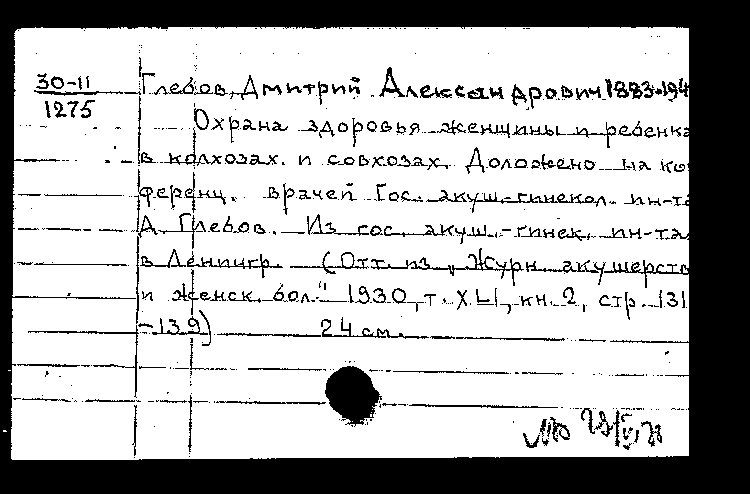 30-11
1275
Глебов, Дмитрий Александрович 1883-194
Охрана здоровья женщины и ребенка
в колхозах. и совхозах. Доложено на кон
ференц. врачей Гос. акуш.-гинекол. ин-та
Д. Глебов. Из гос. акуш.-гинек. ин-та
в Ленингр. (Отт. из „Журн. акушерств
и женск. бол." 1930, т. XLI, кн. 2, стр. 131
-139) 24 см.